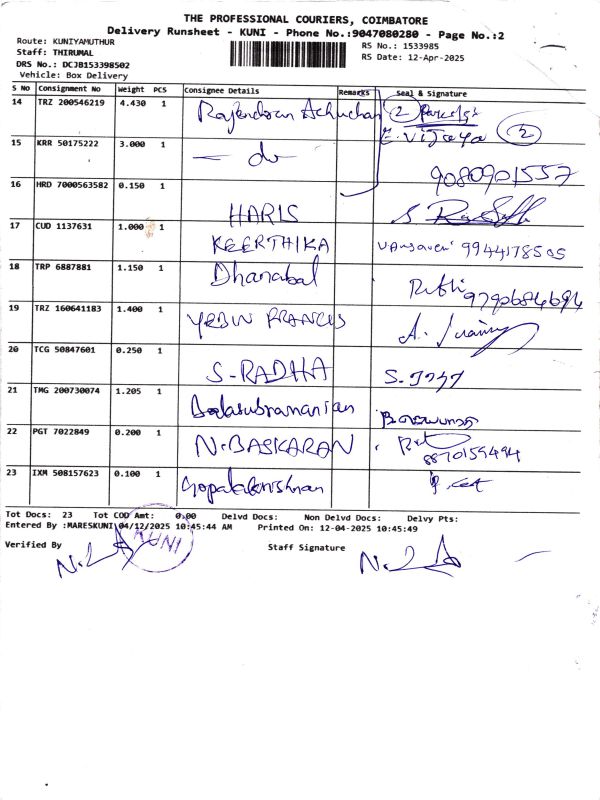 THE PROFESSIONAL COURIERS, COIMBATORE
Delivery Runsheet - KUNI - Phone No.:9047080280 - Page No.:2
Route: KUNIYAMUTHUR
RS No.: 1533985
Staff: THIRUMAL
RS Date: 12-Apr-2025
DRS No.: DCJB153398502
Vehicle: Box Delivery
S No Consignment No Weight PCS Consignee Details Remarks Seal & Signature
14 TRZ 200546219 4.430 1 Rajendran 2
E. Vijaya 2
15 KRR 50175222 3.000 1 - do
9080901557
16 HRD 7000563582 0.150 1 HARIS
17 CUD 1137631 1.000 1 KEERTHIKA 9944178505
18 TRP 6887881 1.150 1 Dhanabal
19 TRZ 160641183 1.400 1 FRANCIS
20 TCG 50847601 0.250 1 S-RADHA S.
21 TMG 200730074 1.205 1 Balasubramanian
22 PGT 7022849 0.200 1 N.BASKARAN
8870159494
23 IXM 508157623 0.100 1 Gopalakrishnan
Tot Docs: 23 Tot COD Amt: 0.00 Delvd Docs: Non Delvd Docs: Delvy Pts:
Entered By :MARESKUNI 04/12/2025 10:45:44 AM Printed On: 12-04-2025 10:45:49
Verified By KUNI Staff Signature